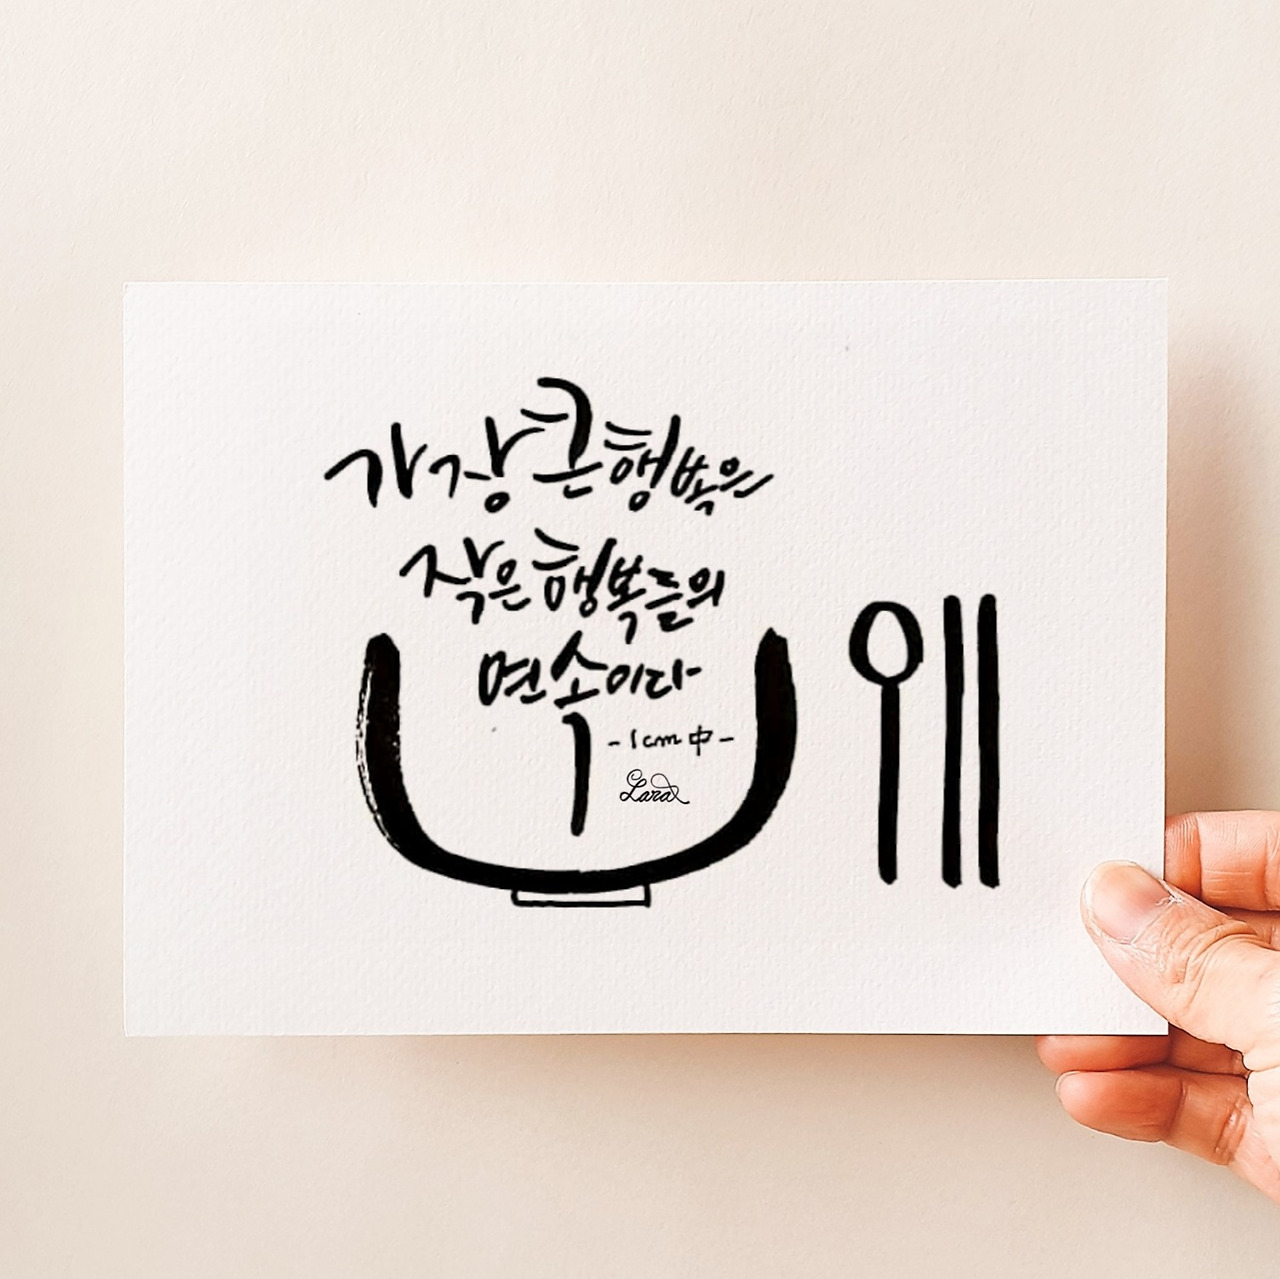 가장 큰 행복은
작은 행복들의
연속이다
- 1cm 中 -
Lara